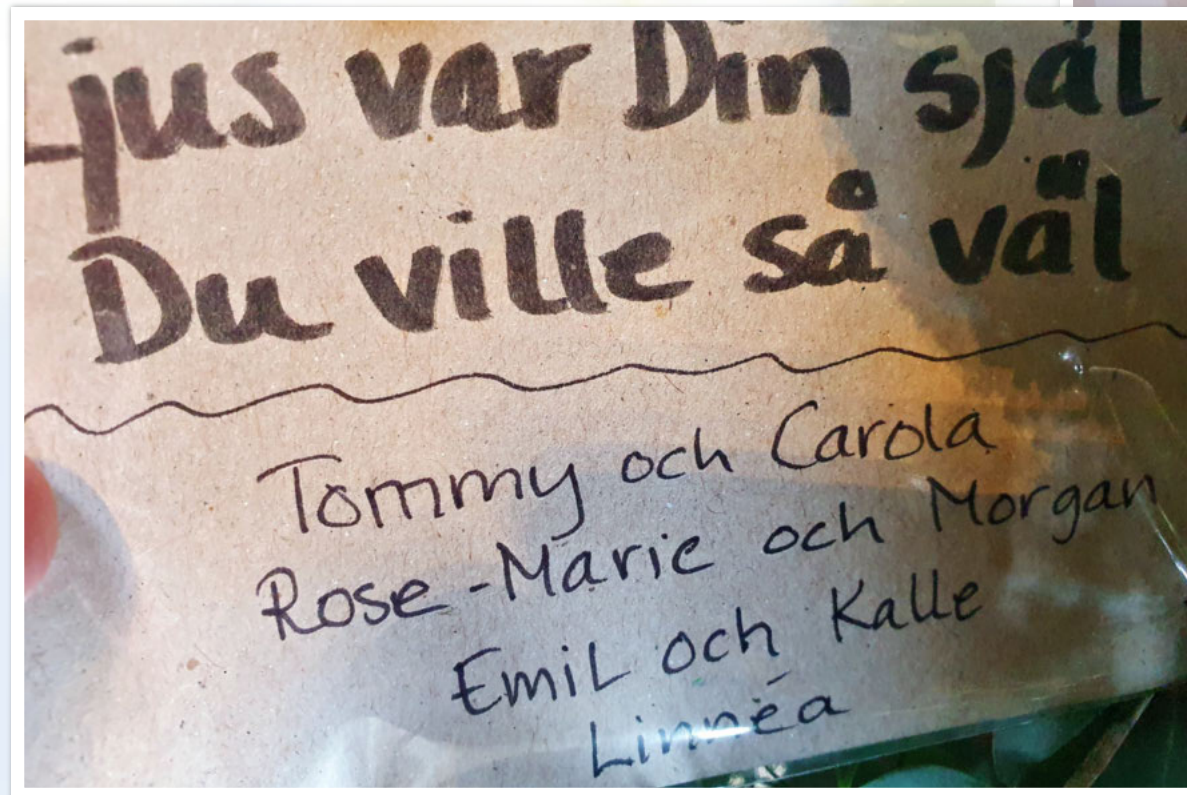 Ljus var Din själ,
Du ville så väl
Tommy och Carola
Rose-Marie och Morgan
Emil och Kalle
Linnéa